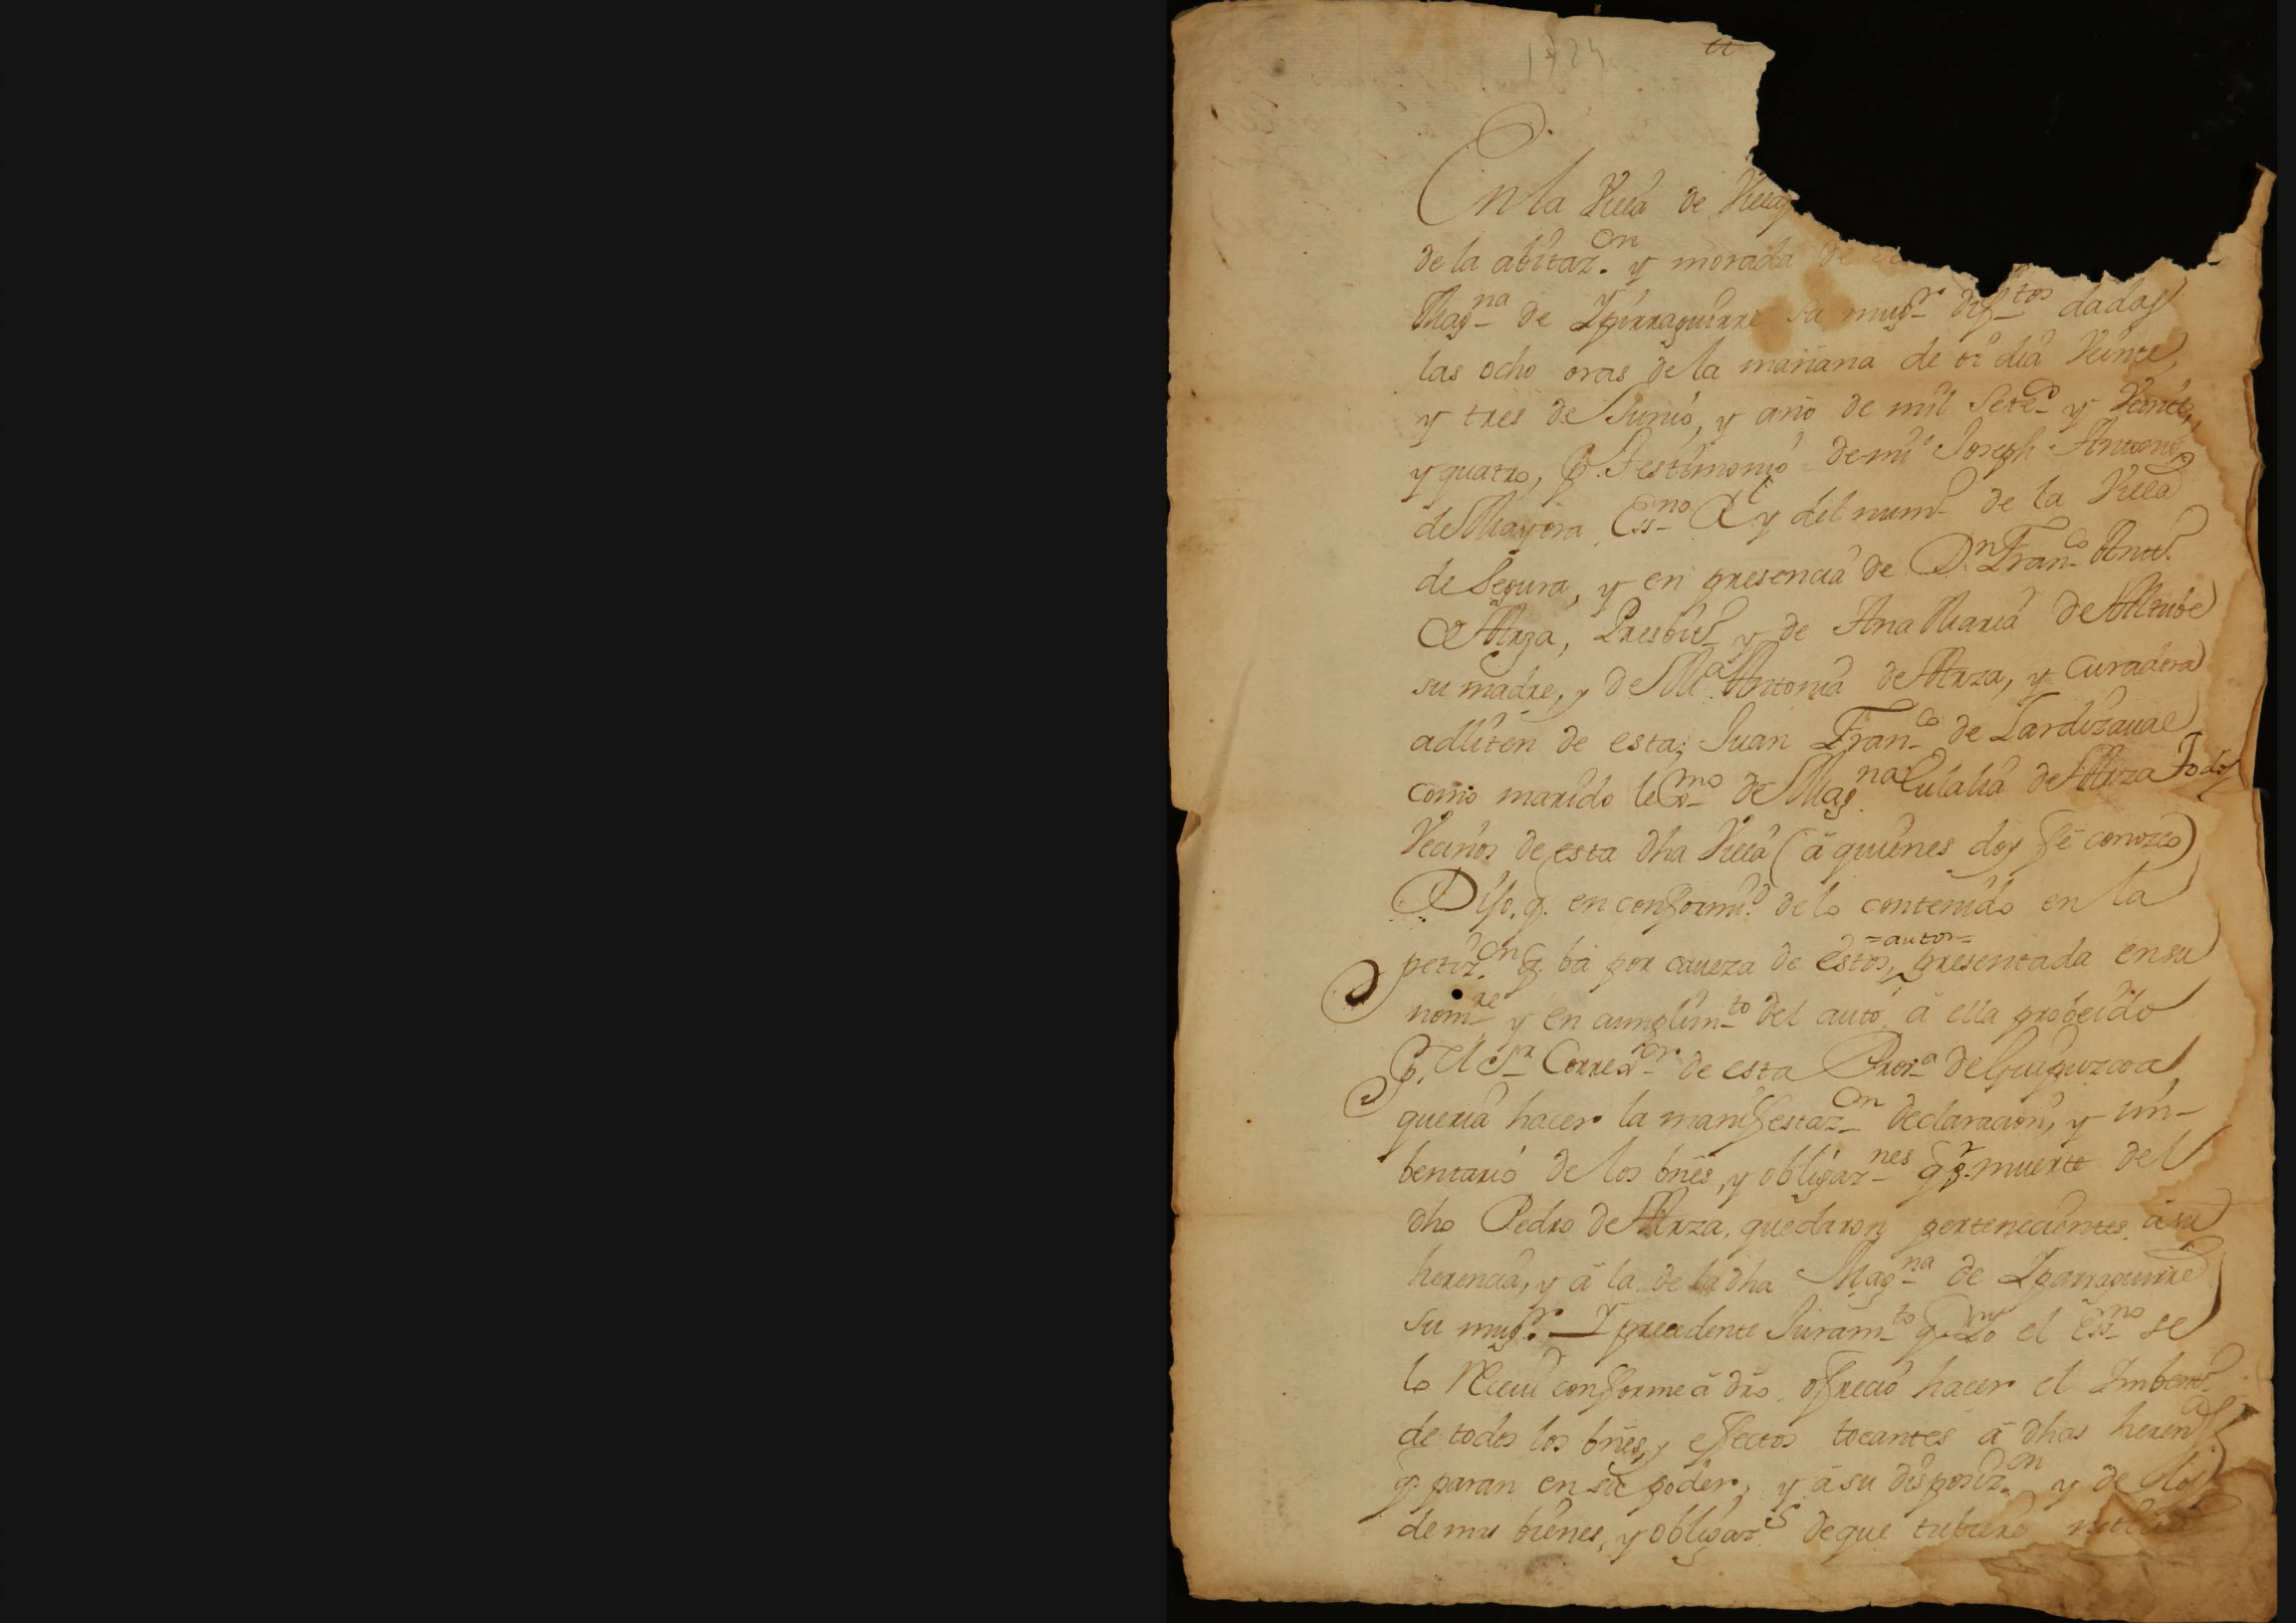 1724
En la Villa de Villa
de la abitaz.on y morada de
Mag_na de Yparraguirre su mug_r dif_tos dadas
las ocho oras de la mañana de oi dia Veinte
y tres de Junio, y año de mil Sete_s y Veinte
y quatro, p. Testimonio de mi Joseph Antonio
de Mayora Ess_no R_l y del num_o de la Villa
de Segura, y en presencia de D.n Fran_co Ant.o
de Arza, Presbit_o y de Ana Maria de Altube
su madre, y de M.a Antonia de Arza, y Curadora
adlitem de esta; Juan Fran_co de Lardizaual
como marido lex_mo de Mag.na Eulalia de Arza Todos
Vecinos de esta dha Villa (â quienes doy fê conozco)
Dijo, q. en conformi.d de lo contenido en la
=autos=
petiz.on q. ba por caueza de estos, presentada en su
nom_re y en cumplim_to del auto â ella probeido
p. el S_r Correx_or de esta Prov_a de Guipuzcoa
queria hacer la manifestaz_on declaracion, y im-
bentario de los bñes, y obligaz_nes q p.r muerte del
dho Pedro de Arza, quedaron pertenecientes â su
herencia, y â la de la dha Mag_na de Yparraguirre
su mug.r Y precedente Juram_to q. Yo el Ess_no se
lo Reciui conforme â dro ofrecio hacer el Imbent.o
de todos los bñes, y efectos tocantes â dhas heren.as
q. paran en su poder, y â su disposiz.on y de los
demas bienes, y obligaz.s de que tubiere noticia